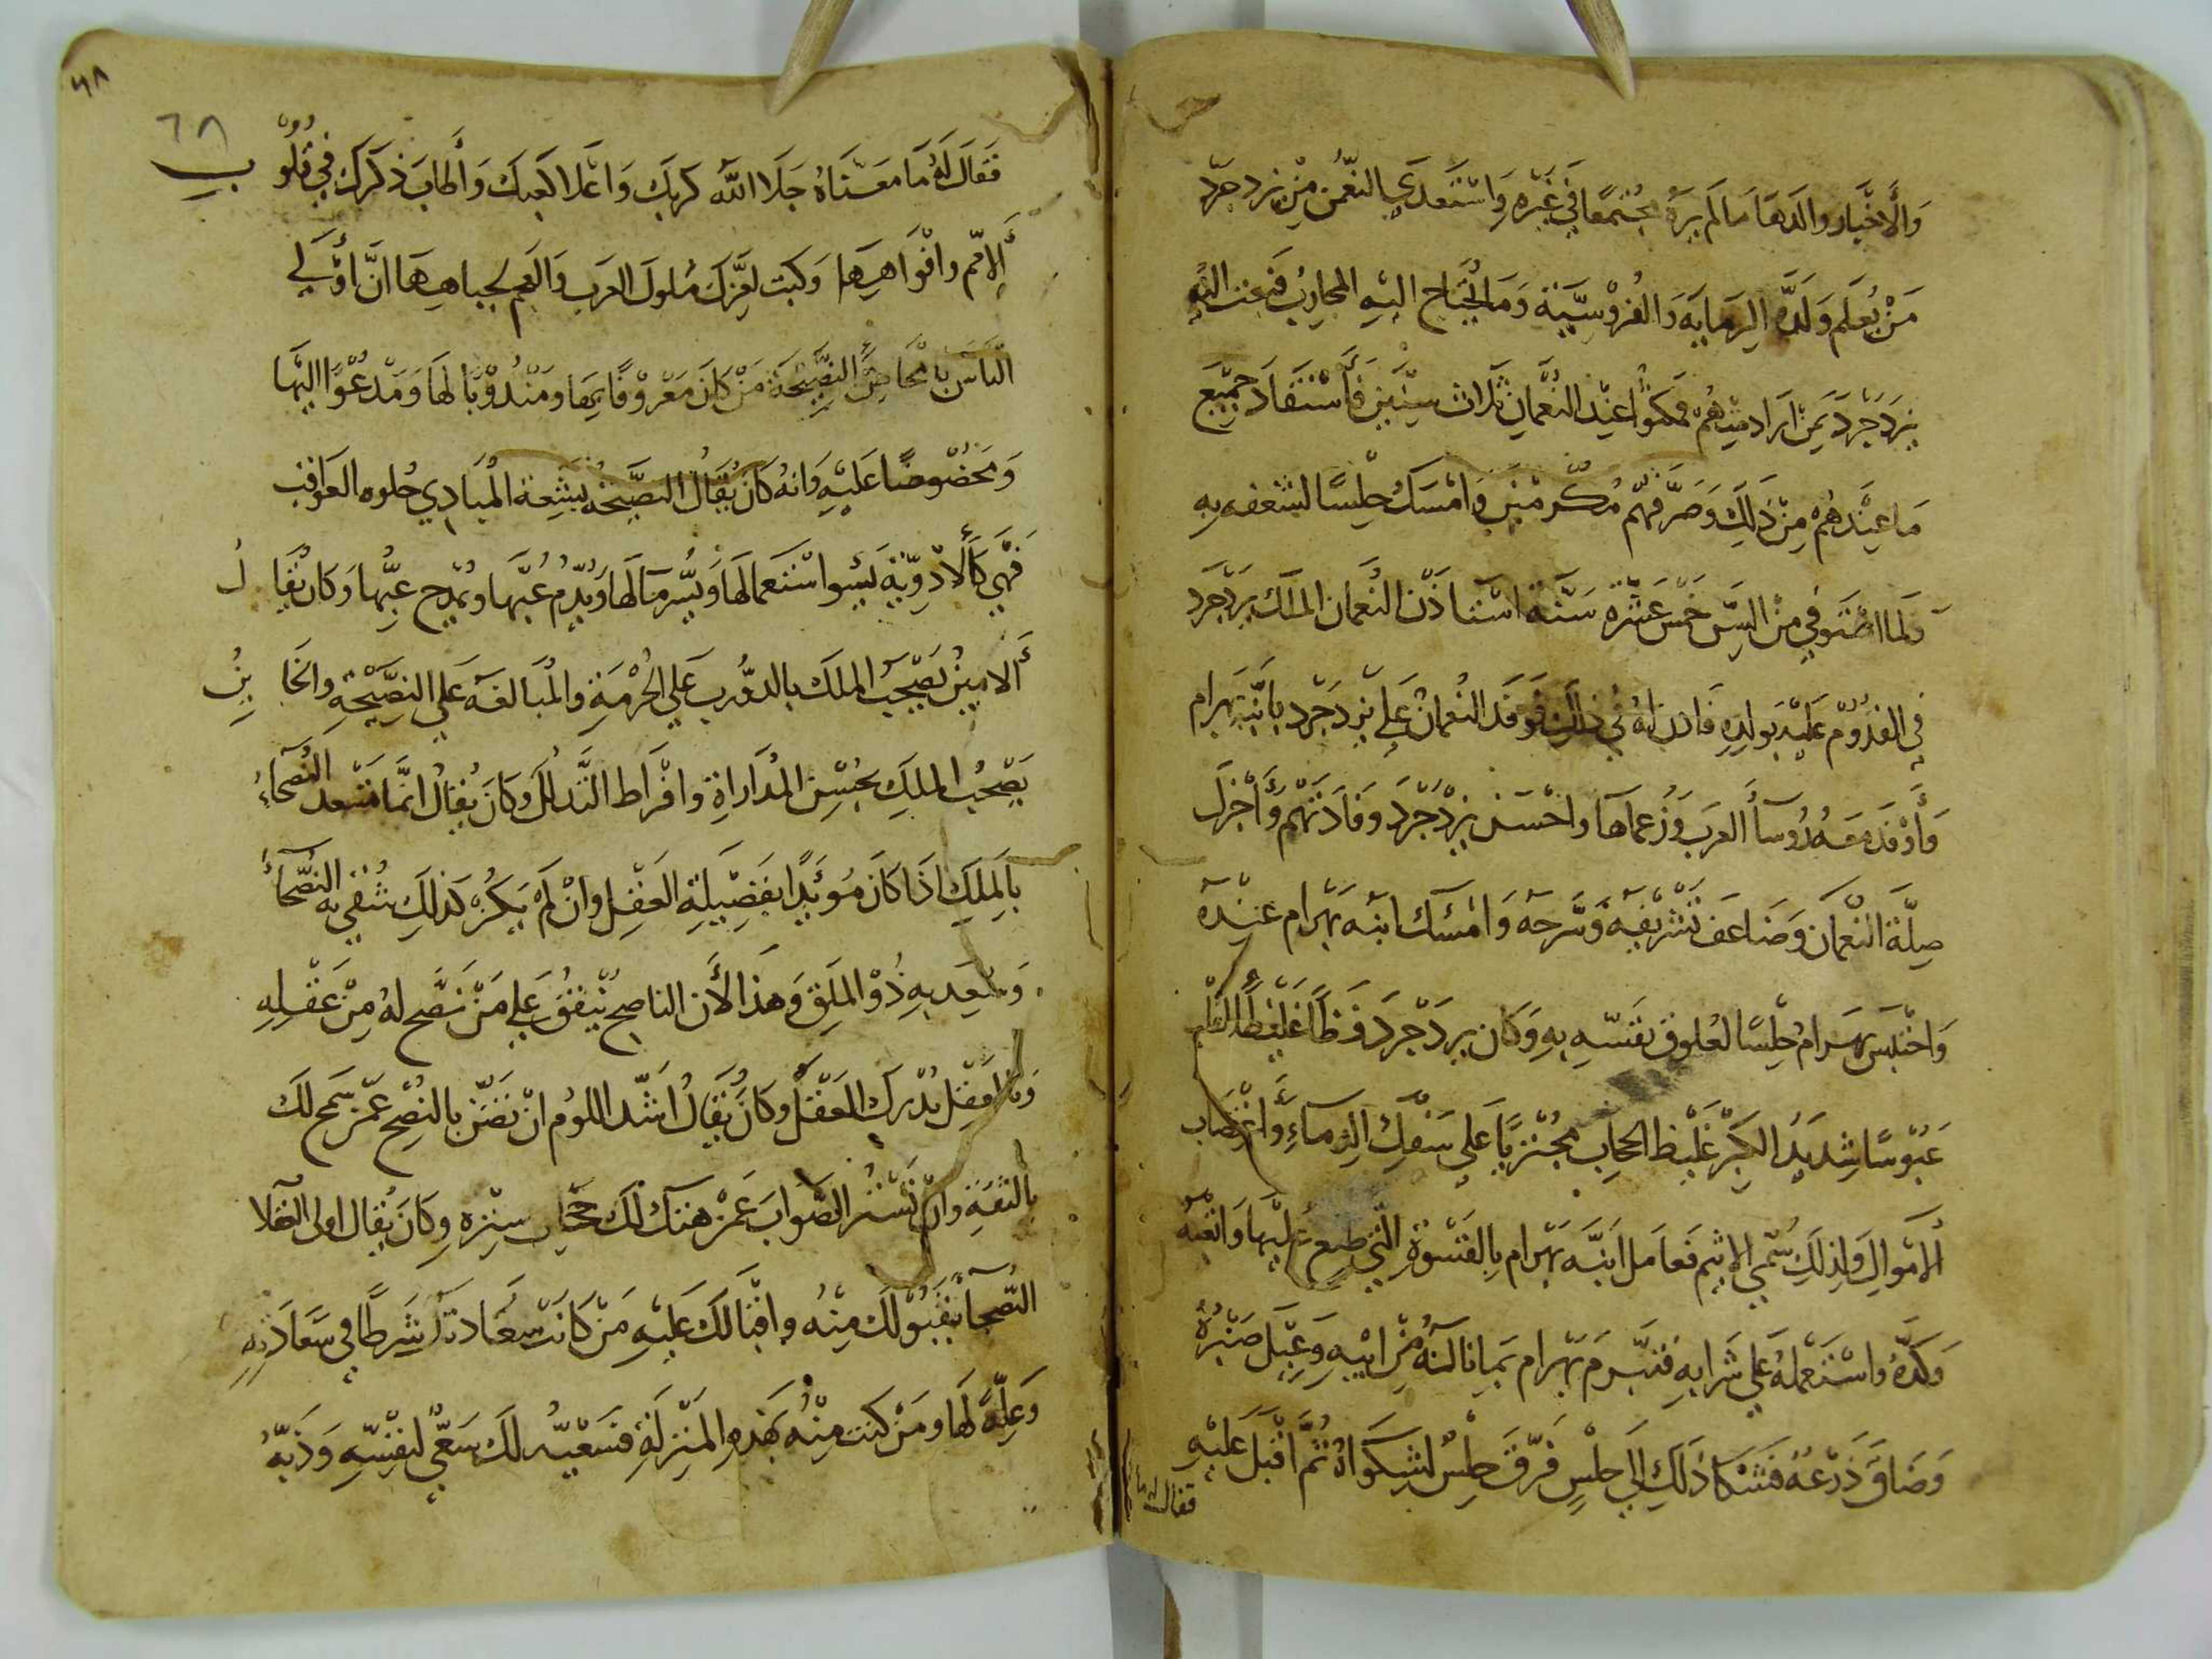 والأخبار والدها ما لم يره مجتمعا في غيره واستعدى النعمن من يزدجرد
من يعلم ولده الرماية والفروسية وما يحتاج اليه المحارب فبعث اليه
يزدجرد بمن اراد منهم فمكثوا عند النعمان ثلاث سنين فاستفاد جميع
ما عندهم من ذلك وصرفهم مكرمين وامسك حلسا لشغفه به
ولما استوفى من السن خمس عشرة سنة استاذن النعمان الملك يزدجرد
في القدوم عليه بولده فاذن له في ذلك فوفد النعمان على يزدجرد بابنه بهرام
وأوفد معه رؤسآ العرب وزعماها واحسن يزدجرد وفادتهم وأجزل
صلة النعمان وضاعف تشريفه وسرحه وامسك ابنه بهرام عنده
واحتبس بهرام حلسا لعلوق نفسه به وكان يزدجرد فظا غليظ القلب
عبوسا شديد الكبر غليظ الحجاب مجترئا على سفك الدماء واغتصاب
الأموال ولذلك سمي الاثيم فعامل ابنه بهرام بالقسوة التي طبع عليها واتعبه
وكده واستعمله على شرابه فتبرم بهرام بما ناله من ابيه وعيل صبره
وضاق ذرعه فشكا ذلك إلى حلس فرق حلس لشكواه ثم اقبل عليه
فقال له ما
٦٨
٦٨
فقال له ما معناه جلا الله كربك واعلا كعبك وأطاب ذكرك في قلوب
الأمم وافواهها وكبت لعزك ملوك العرب والعجم لجباهها ان أولى
الناس بامحاض النصيحة من كان معروفا بها ومندوبا لها ومدعوا اليها
ومخصوصا عليه وانه كان يقال النصيحة بشعة المبادي حلوه العواقب
فهي كالأدوية يسوء استعمالها ويسر مآلها ويذم غبها ويمدح غبها وكان يقال
الامين يصحب الملك بالدؤب على الحرمة والمبالغه على النصيحة والخاين
يصحب الملك بحسن المداراة وافراط التذلل وكان يقال انما تسعد النصحاء
بالملك اذا كان مؤيدا بفضيلة العقل وان لم يكن كذلك شقي به النصحآء
وسعد به ذو الملق وهذا لأن الناصح ينفق على من نصح له من عقله
وبالعقل يدرك العقل وكان يقال اشد اللوم ان تضن بالنصح عمن سمح لك
بالثقة وان تستر الصواب عمن هتك لك حجاب ستره وكان يقال اولى العقلا
النصحآ بقبولك منه واقبالك عليه من كانت سعادتك شرطا في سعادته
وعلة لها ومن كنت منه بهذه المنزلة فسعيه لك سعي لنفسه وذبه